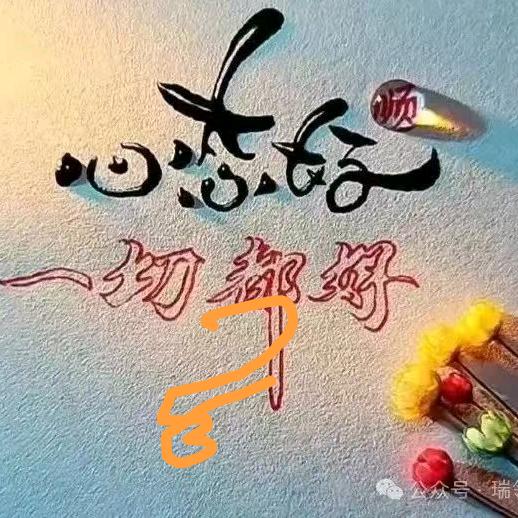 心态好
顺
一切都好
公众号 · 瑞